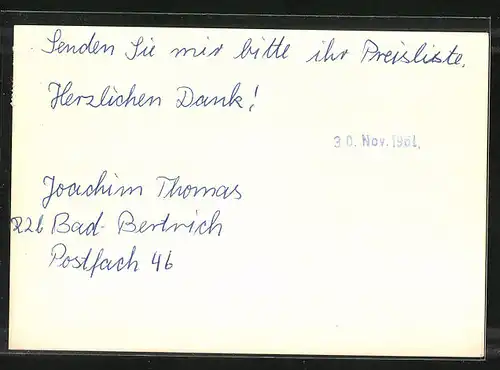 Senden Sie mir bitte ihr Preisliste.
Herzlichen Dank!
30. Nov. 1961.
Joachim Thomas
22b Bad-Bertrich
Postfach 46